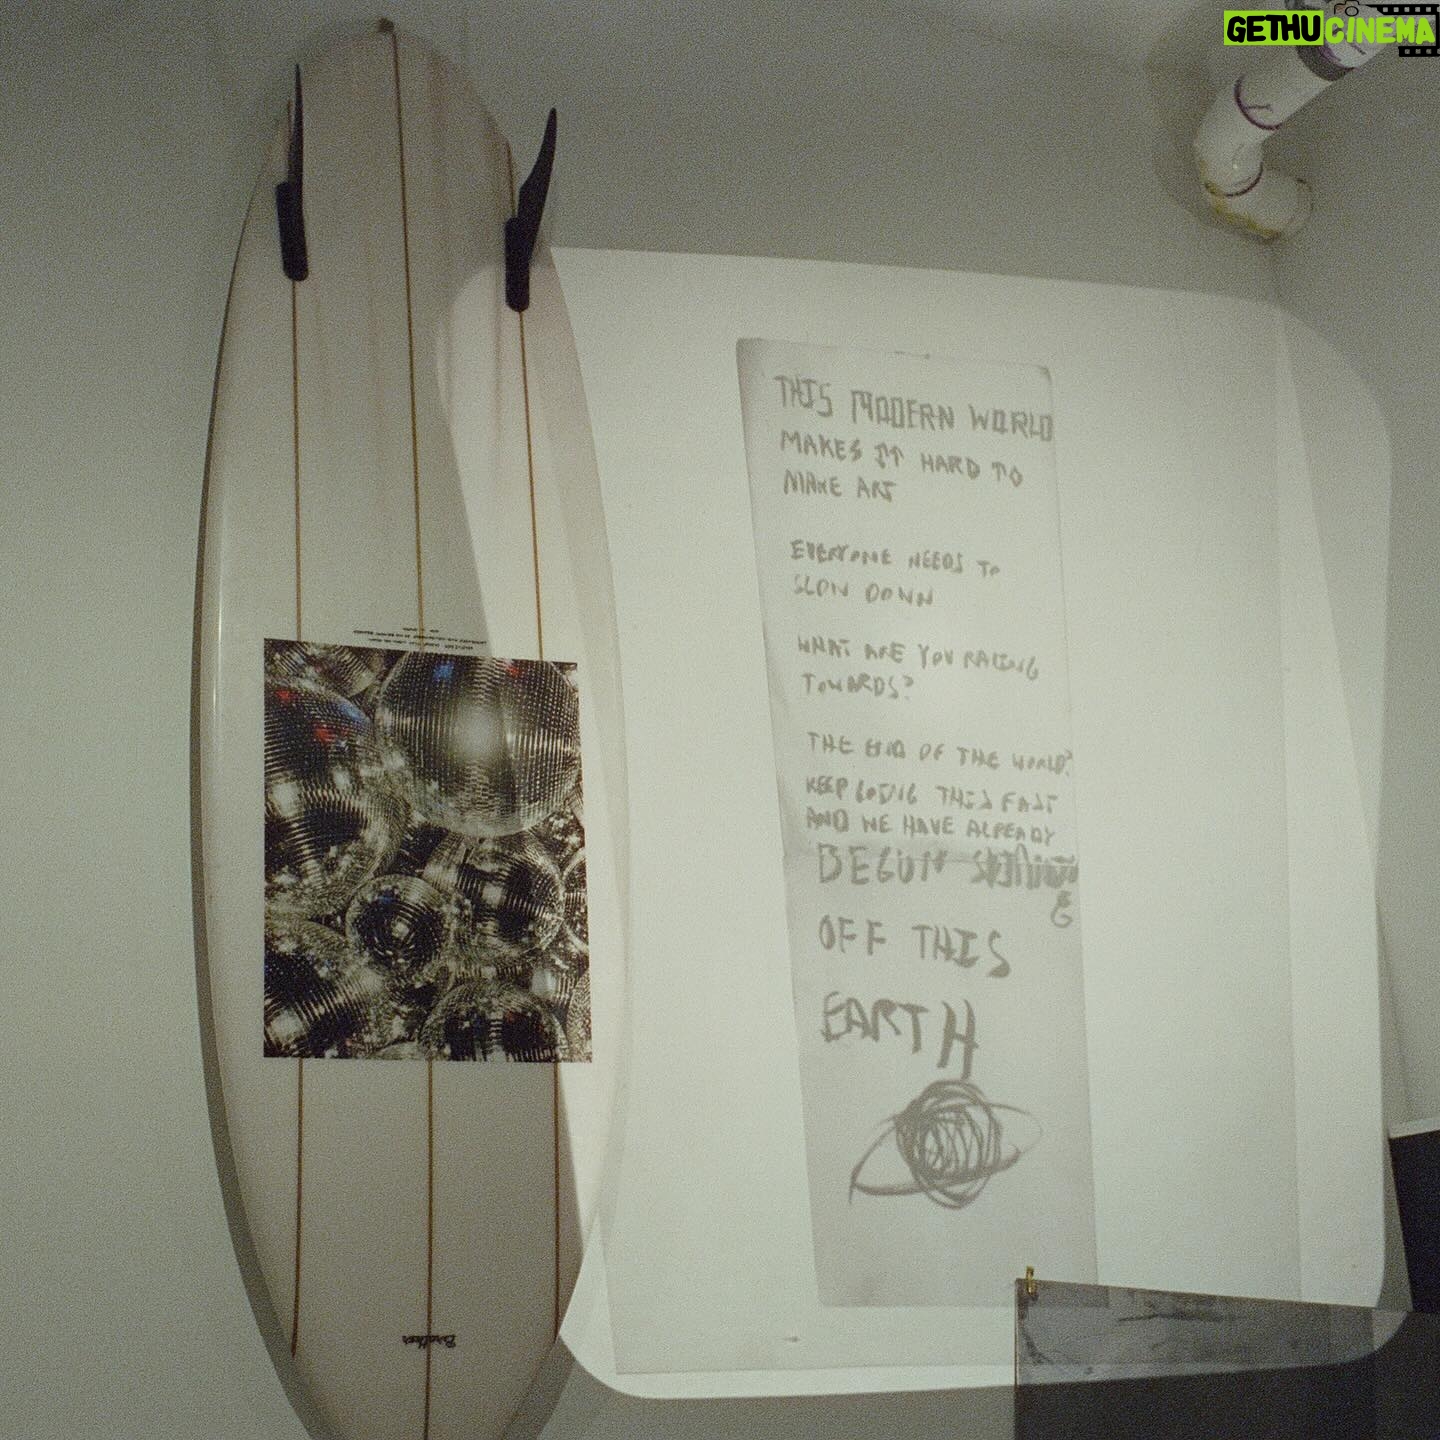 GETHUCINEMA
THIS MODERN WORLD
MAKES IT HARD TO
MAKE ART
EVERYONE NEEDS TO
SLOW DOWN
WHAT ARE YOU RACING
TOWARDS?
THE END OF THE WORLD?
KEEP GOING THIS FAST
AND WE HAVE ALREADY
BEGUN
OFF THIS
EARTH
Brothers